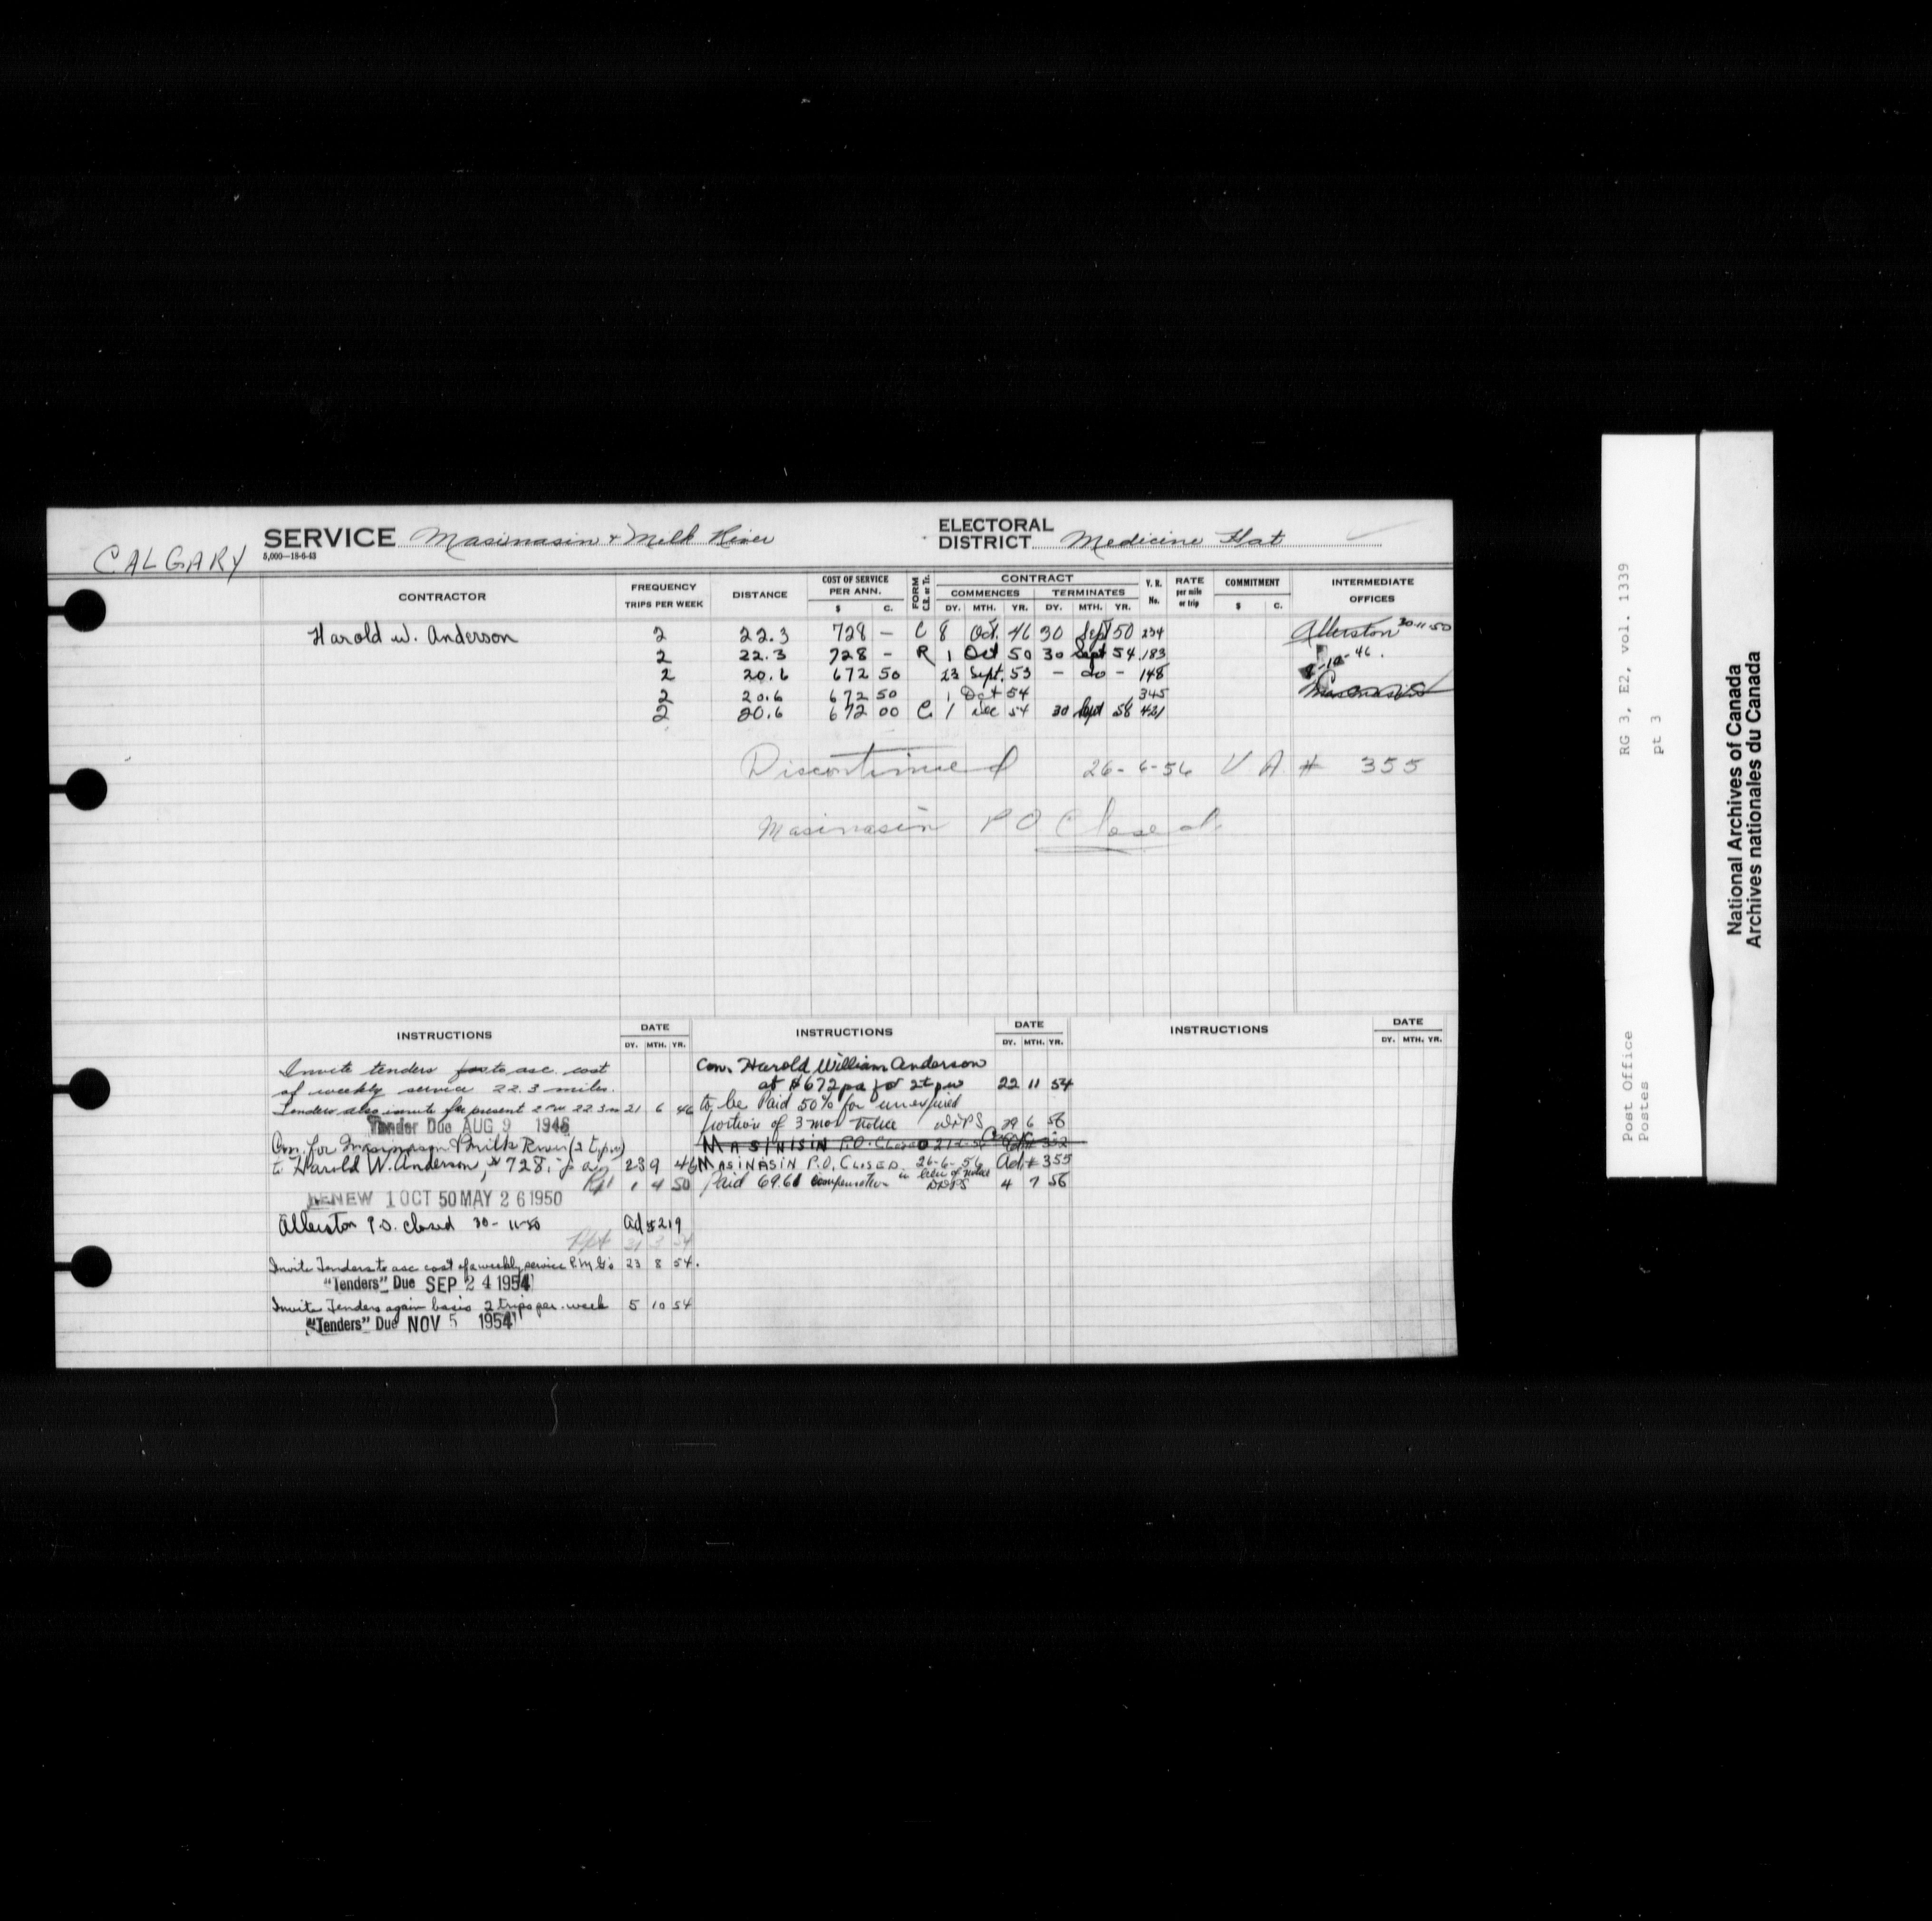 CALGARY
SERVICE Masinasin & Milk River
5,000—18-6-43
ELECTORAL DISTRICT Medicine Hat
CONTRACTOR
FREQUENCY TRIPS PER WEEK
DISTANCE
COST OF SERVICE PER ANN. $ C.
FORM C.R. or Tr.
CONTRACT
COMMENCES DY. MTH. YR.
TERMINATES DY. MTH. YR.
V.R. No.
RATE per mile or trip
COMMITMENT $ C.
INTERMEDIATE OFFICES
Harold W. Anderson 2 22.3 728 — C 8 Oct. 46 30 Sept 50 234 Allerston 30-11-50
2 22.3 728 - R 1 Oct 50 30 Sept 54 183 8-10-46.
2 20.6 672 50 23 Sept. 53 — do — 148
2 20.6 672 50 1 Oct 54 345
2 20.6 672 00 C 1 Dec 54 30 Sept 58 421
Discontinued 26-6-56 V A # 355
Masinasin PO Closed
INSTRUCTIONS DATE DY. MTH. YR.
Invite tenders to asc. cost
of weekly service 22.3 miles.
Tenders also invite for present 2 PW 22.3m 21 6 46
Tender Due AUG 9 1946
Con. for Masinasin & Milk River (2 t.p.w)
to Harold W. Anderson, $728. p a 23 9 46
Rpt 1 4 50
RENEW 1 OCT 50 MAY 26 1950
Allerston P.O. closed 30-11-50 Ad #219
Rpt 31 3 54
Invite Tenders to asc cost of a weekly service P.M.G's 23 8 54.
"Tenders" Due SEP 24 1954
Invite Tenders again basis 2 trips per week 5 10 54
"Tenders" Due NOV 5 1954
INSTRUCTIONS DATE DY. MTH. YR.
Con. Harold William Anderson
at $672 pa for 2t pw 22 11 54
to be Paid 50% for unexpired
portion of 3 mos notice DDPS 29 6 56
MASINISIN P.O. Closed
MASINASIN P.O. CLOSED. 26-6-56 Ad. #355
Paid 69.61 compensation in lieu of notice DDPS 4 7 56
INSTRUCTIONS DATE DY. MTH. YR.
RG 3, E2, vol. 1339
pt 3
Post Office
Postes
National Archives of Canada
Archives nationales du Canada